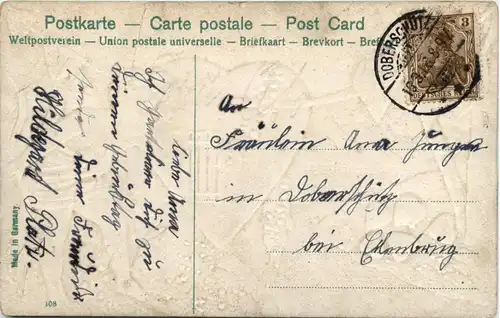 Postkarte — Carte postale — Post Card
Weltpostverein — Union postale universelle — Briefkaart — Brevkort — Bref
DOBERSCHÜTZ
3
Liebe Anna
Ich gratuliere Dir zu
Deinem Geburtstag
Deine Freundin
Hildegard Platz.
An
Fräulein Anna
in Doberschütz
bei Eilenburg
Made in Germany
108